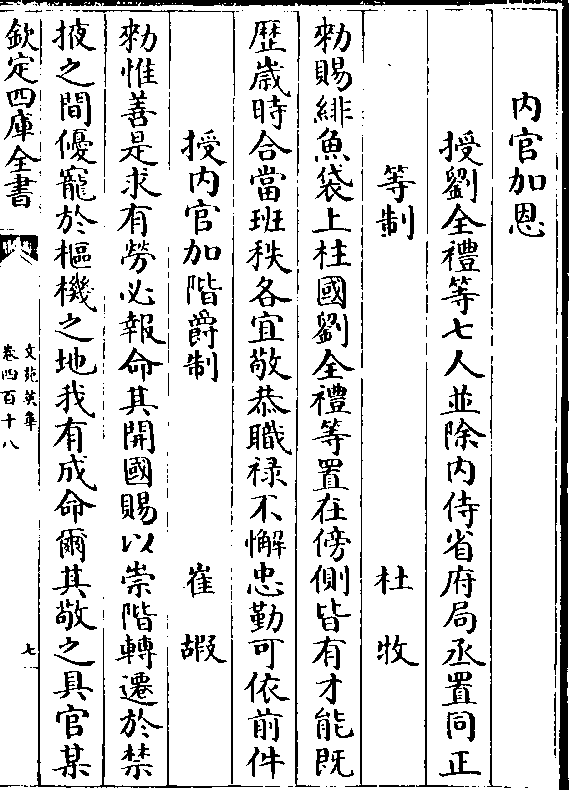 内官加恩
授劉全禮等七人並除内侍省府局丞置同正
等制 杜牧
勑賜緋魚袋上柱國劉全禮等置在傍側皆有才能既
歴歲時合當班秩各宜敬恭職禄不懈忠勤可依前件
授内官加階爵制 崔嘏
勑惟善是求有勞必報命其開國賜以崇階轉遷於禁
掖之間優寵於樞機之地我有成命爾其敬之具官某
欽定四庫全書
文苑英華
卷四百十八
七